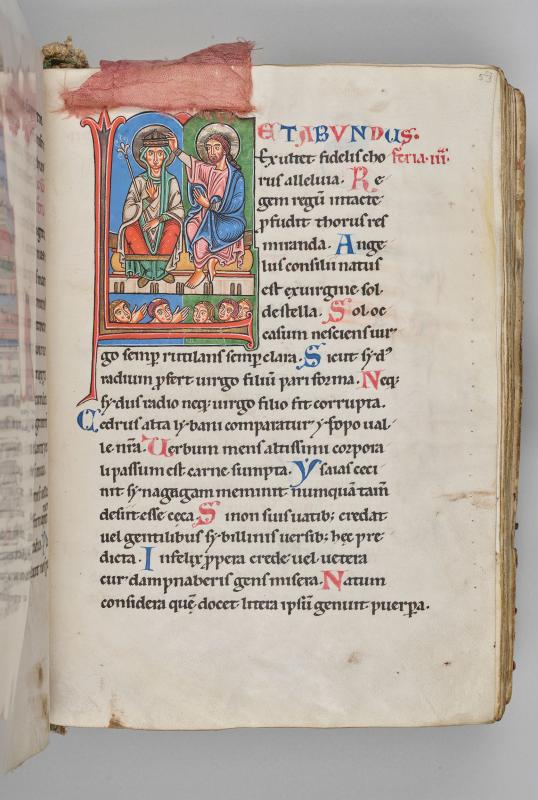 53
LETABVNDUS.
Exultet fidelis cho feria .iii.
rus alleluia. Re
gem regū intacte
ꝓfudit thorus res
miranda. Ange
lus consilii natus
est ex uirgine sol
de stella. Sol oc
casum nesciens uir
go semꝑ rutilans semꝑ clara. Sicut sẏdꝰ
radium ꝓfert uirgo filiū pari forma. Neq;
sẏdus radio neq; uirgo filio fit corrupta.
Cedrus alta lẏbani comparatur ẏsopo ual
le nr̄a. Uerbum mens altissimi corpora
li passum est carne sumpta. Ysaias ceci
nit sẏnagoga meminit numquā tam̄
desiit esse ceca. Si non suis uatib; credat
uel gentilibus sẏbillinis uersib; hęc pre
dicta. Infelix ꝓpera crede uel uetera
cur dampnaberis gens misera. Natum
considera quē docet litera ipsū genuit puerꝑa.